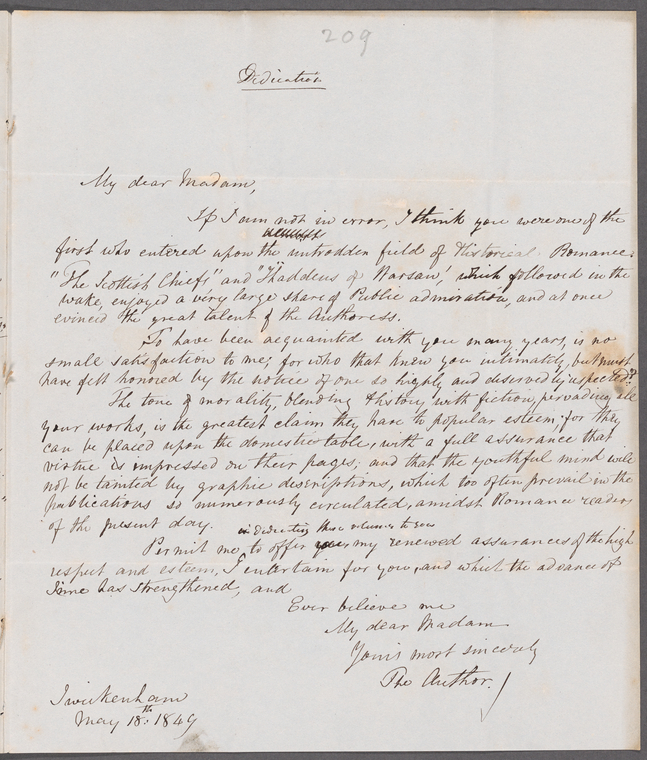 209
Dedication
My dear Madam,
If I am not in error, I think you were one of the
first who entered upon the untrodden field of Historical Romance.
"The Scottish Chiefs" and "Thaddeus of Warsaw," which followed in the
wake, enjoyed a very large share of Public admiration, and at once
evinced the great talent of the Authoress.
To have been acquainted with you many years, is no
small satisfaction to me; for who that knew you intimately, but must
have felt honored by the notice of one so highly and deservedly respected?
The tone of morality, blending History with fiction, pervading all
your works, is the greatest claim they have to popular esteem; for they
can be placed upon the domestic table, with a full assurance that
virtue is impressed on their pages; and that the youthful mind will
not be tainted by graphic descriptions, which too often prevail in the
publications so numerously circulated, amidst Romance readers
of the present day.
in dedicating these volumes to you
Permit me, to offer you, my renewed assurances of the high
respect and esteem, I entertain for you, and which the advance of
Time has strengthened, and
Ever believe me
My dear Madam
Yours most sincerely
The Author.
Twickenham
May 18th: 1849